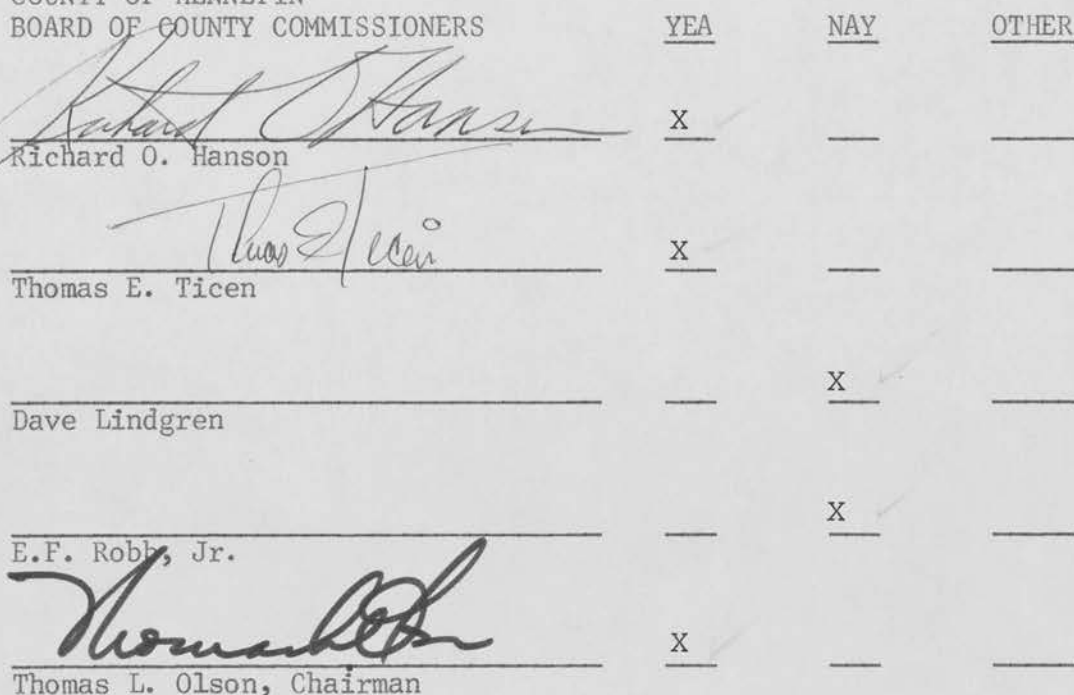 BOARD OF COUNTY COMMISSIONERS YEA NAY OTHER
Richard O Hanson X
Richard O. Hanson
Thomas E Ticen X
Thomas E. Ticen
X
Dave Lindgren
X
E.F. Robb, Jr.
Thomas L Olson X
Thomas L. Olson, Chairman